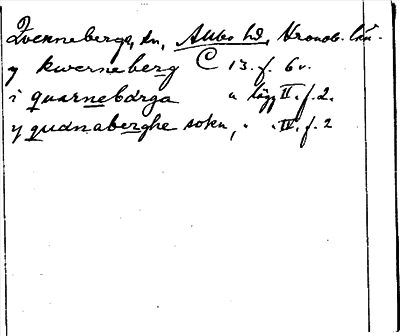 Qvenneberga, sn, Allbo hd, Kronob. län.
y kwerneberg C 13. f. 6 v.
i quarnebärga " lägg II. f. 2.
y quarnaberghe sokn, " " IV. f. 2